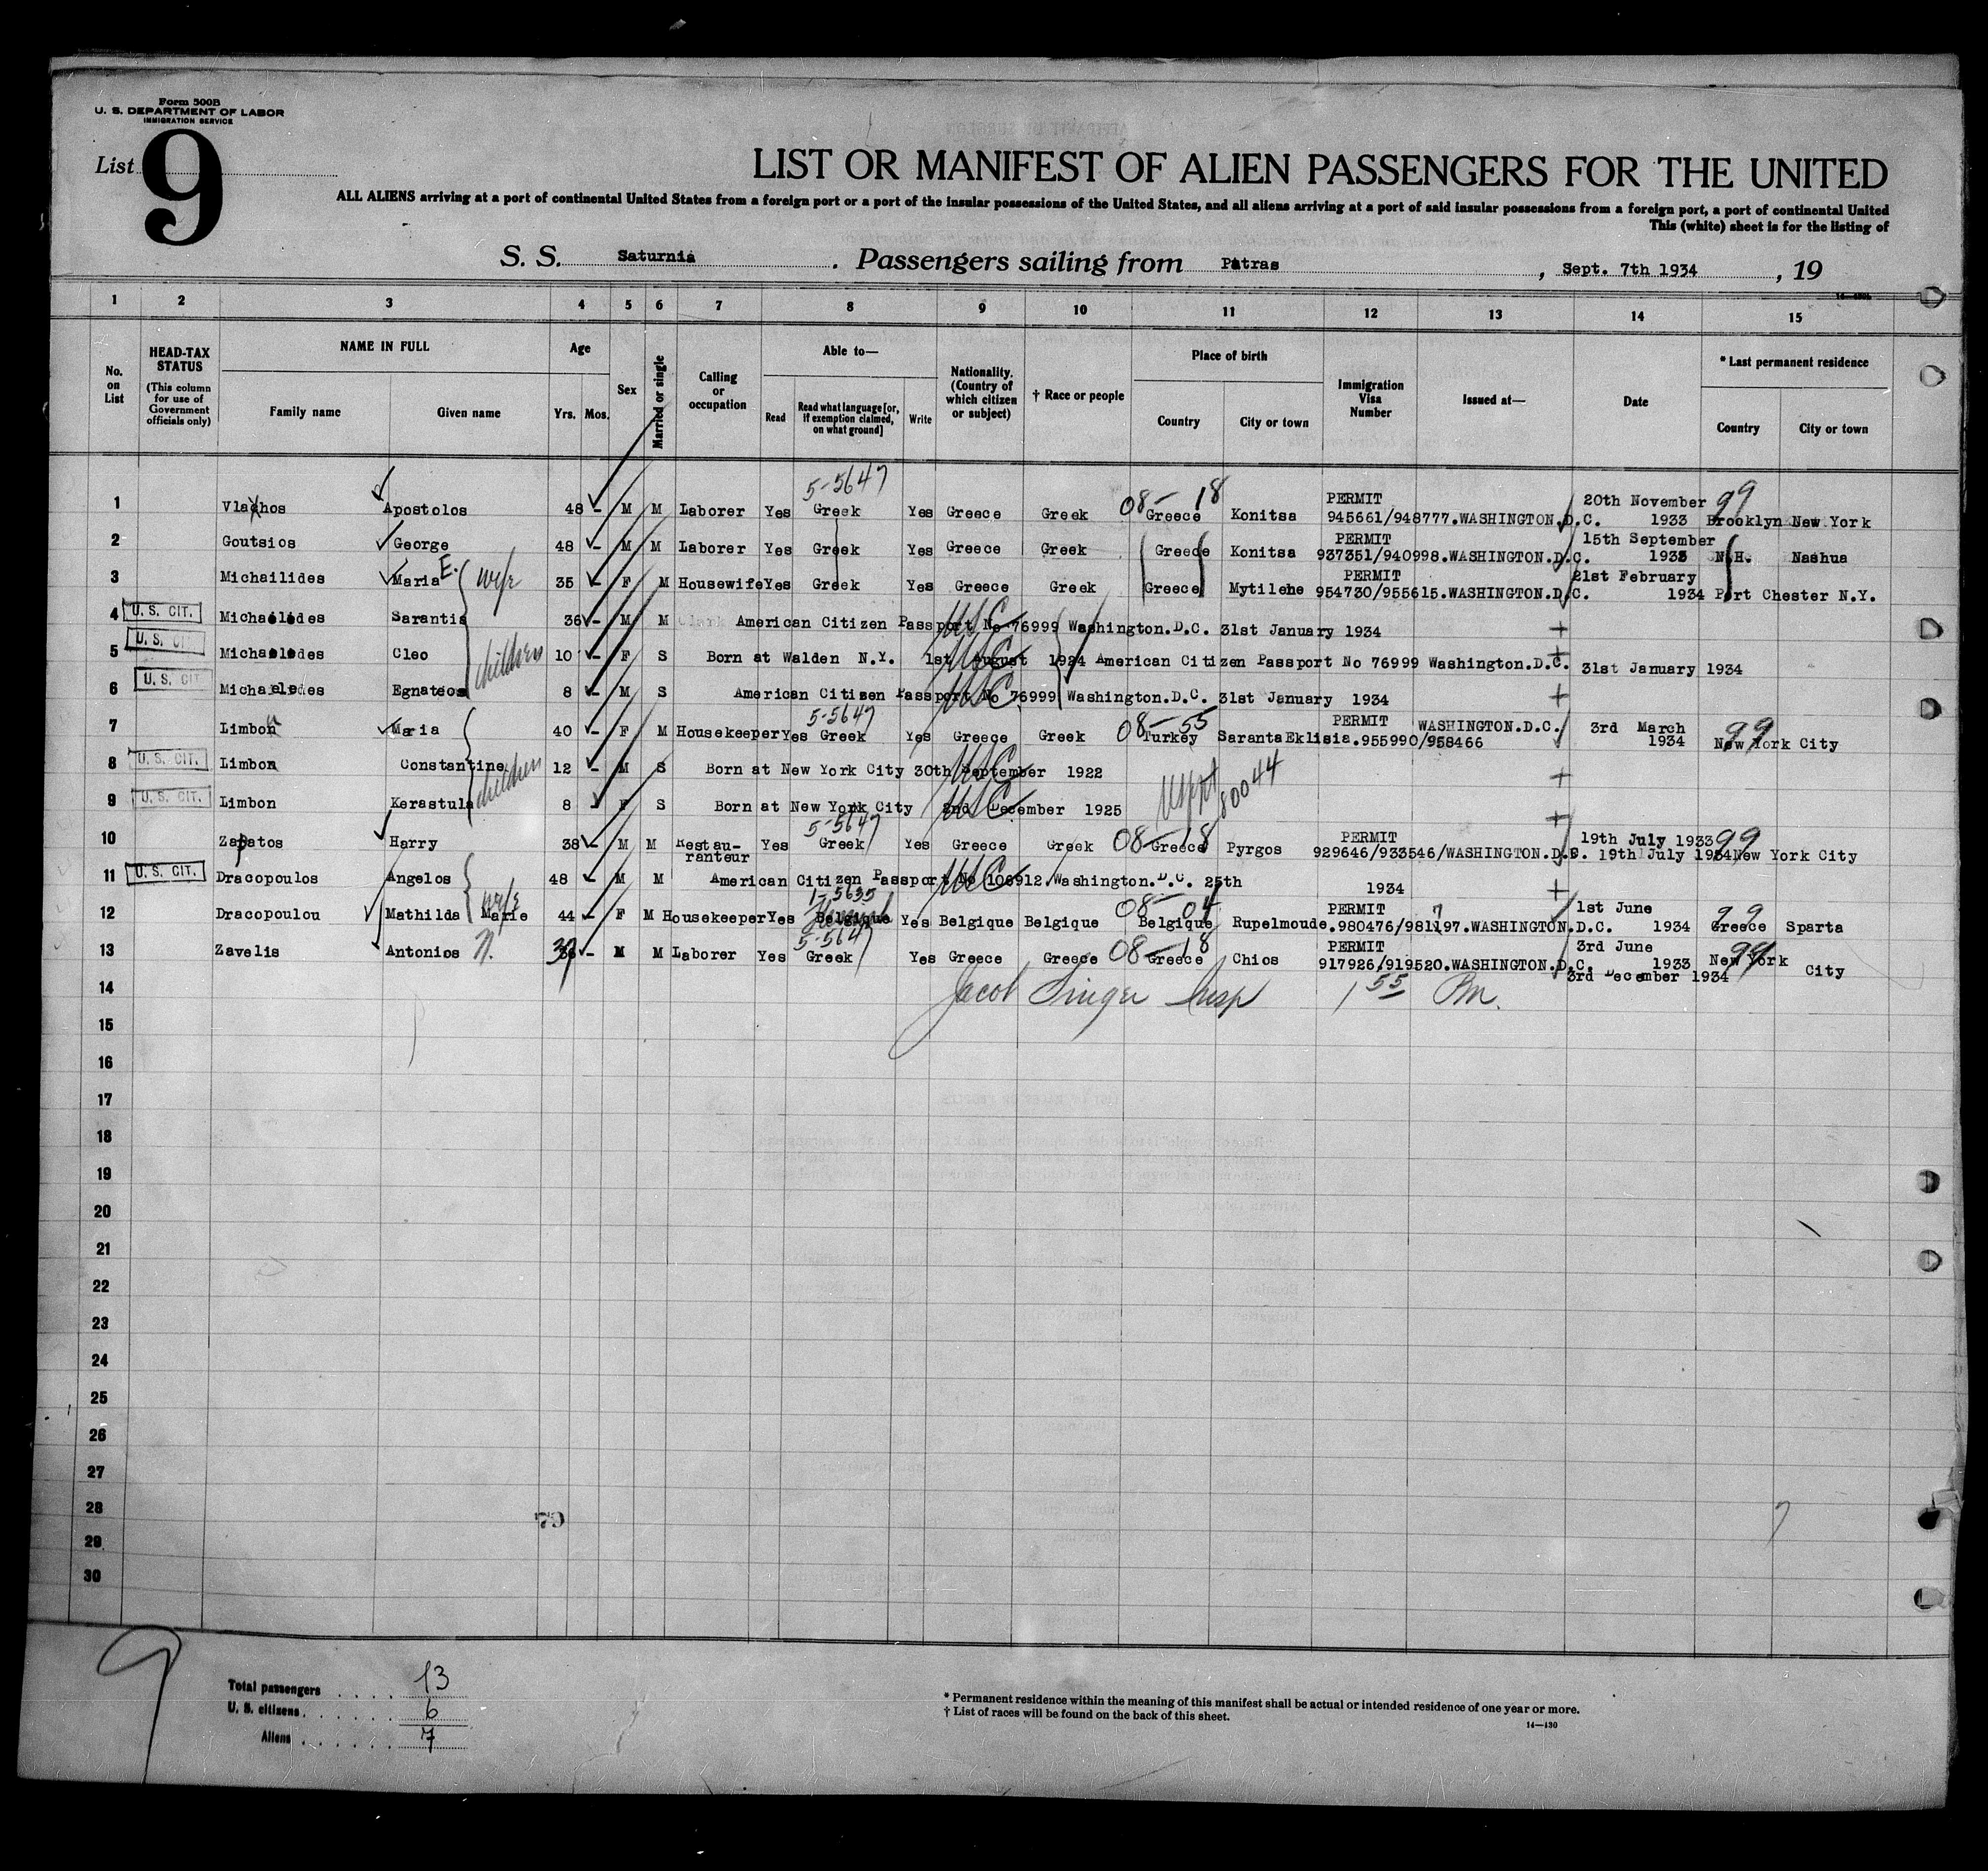 Form 500B
U. S. DEPARTMENT OF LABOR
IMMIGRATION SERVICE
List 9
LIST OR MANIFEST OF ALIEN PASSENGERS FOR THE UNITED
ALL ALIENS arriving at a port of continental United States from a foreign port or a port of the insular possessions of the United States, and all aliens arriving at a port of said insular possessions from a foreign port, a port of continental United
This (white) sheet is for the listing of
S. S. Saturnia. Passengers sailing from Patras, Sept. 7th 1934, 19
1 2 3 4 5 6 7 8 9 10 11 12 13 14 15
No. on List
HEAD-TAX STATUS (This column for use of Government officials only)
NAME IN FULL Family name Given name
Age Yrs. Mos.
Sex
Married or single
Calling or occupation
Able to— Read Read what language [or, if exemption claimed, on what ground] Write
Nationality. (Country of which citizen or subject)
† Race or people
Place of birth Country City or town
Immigration Visa Number
Issued at—
Date
* Last permanent residence Country City or town
1 Vlachos Apostolos 48 - M M Laborer Yes 5-5647 Greek Yes Greece Greek 08-18 Greece Konitsa PERMIT 945661/948777.WASHINGTON.D.C. 20th November 1933 99 Brooklyn New York
2 Goutsios George 48 - M M Laborer Yes Greek Yes Greece Greek Greece Konitsa PERMIT 937351/940998.WASHINGTON.D.C. 15th September 1933 N.H. Nashua
3 Michailides Maria E. wife 35 - F M Housewife Yes Greek Yes Greece Greek Greece Mytilene PERMIT 954730/955615.WASHINGTON.D.C. 21st February 1934 Port Chester N.Y.
4 U. S. CIT. Michaelides Sarantis 36 - M M American Citizen Passport No 76999 Washington.D.C. 31st January 1934 USC
5 U. S. CIT Michaelides Cleo children 10 - F S Born at Walden N.Y. 1st August 1924 American Citizen Passport No 76999 Washington.D.C. 31st January 1934 USC
6 U. S. CIT Michaelides Egnateos 8 - M S American Citizen Passport No 76999 Washington.D.C. 31st January 1934 USC
7 Limbon Maria 40 - F M Housekeeper Yes 5-5647 Greek Yes Greece Greek 08-55 Turkey SarantaEklisia. PERMIT 955990/958466 WASHINGTON.D.C. 3rd March 1934 99 New York City
8 U. S. CIT. Limbon Constantine children 12 - M S Born at New York City 30th September 1922 USC
9 U. S. CIT. Limbon Kerastula 8 - F S Born at New York City 2nd December 1925 USC 80044
10 Zapatos Harry 38 - M M Restauranteur Yes 5-5647 Greek Yes Greece Greek 08-18 Greece Pyrgos PERMIT 929646/933546/WASHINGTON.D.C. 19th July 1933 19th July 1934 99 New York City
11 U. S. CIT. Dracopoulos Angelos 48 - M M American Citizen Passport No 106912.Washington.D.C. 25th 1934 USC
12 Dracopoulou Mathilda Marie wife 44 - F M Housekeeper Yes 1-5635 Belgique Yes Belgique Belgique 08-04 Belgique Rupelmoude. PERMIT 980476/981197.WASHINGTON.D.C. 1st June 1934 99 Greece Sparta
13 Zavelis Antonios N. 39 - M M Laborer Yes 5-5647 Greek Yes Greece Greece 08-18 Greece Chios PERMIT 917926/919520.WASHINGTON.D.C. 3rd June 1933 3rd December 1934 99 New York City
14 Jacob Singer Insp 1 55 Pm.
15
16
17
18
19
20
21
22
23
24
25
26
27
28
29
30
9
Total passengers 13
U. S. citizens 6
Aliens 7
* Permanent residence within the meaning of this manifest shall be actual or intended residence of one year or more.
† List of races will be found on the back of this sheet.
14—430